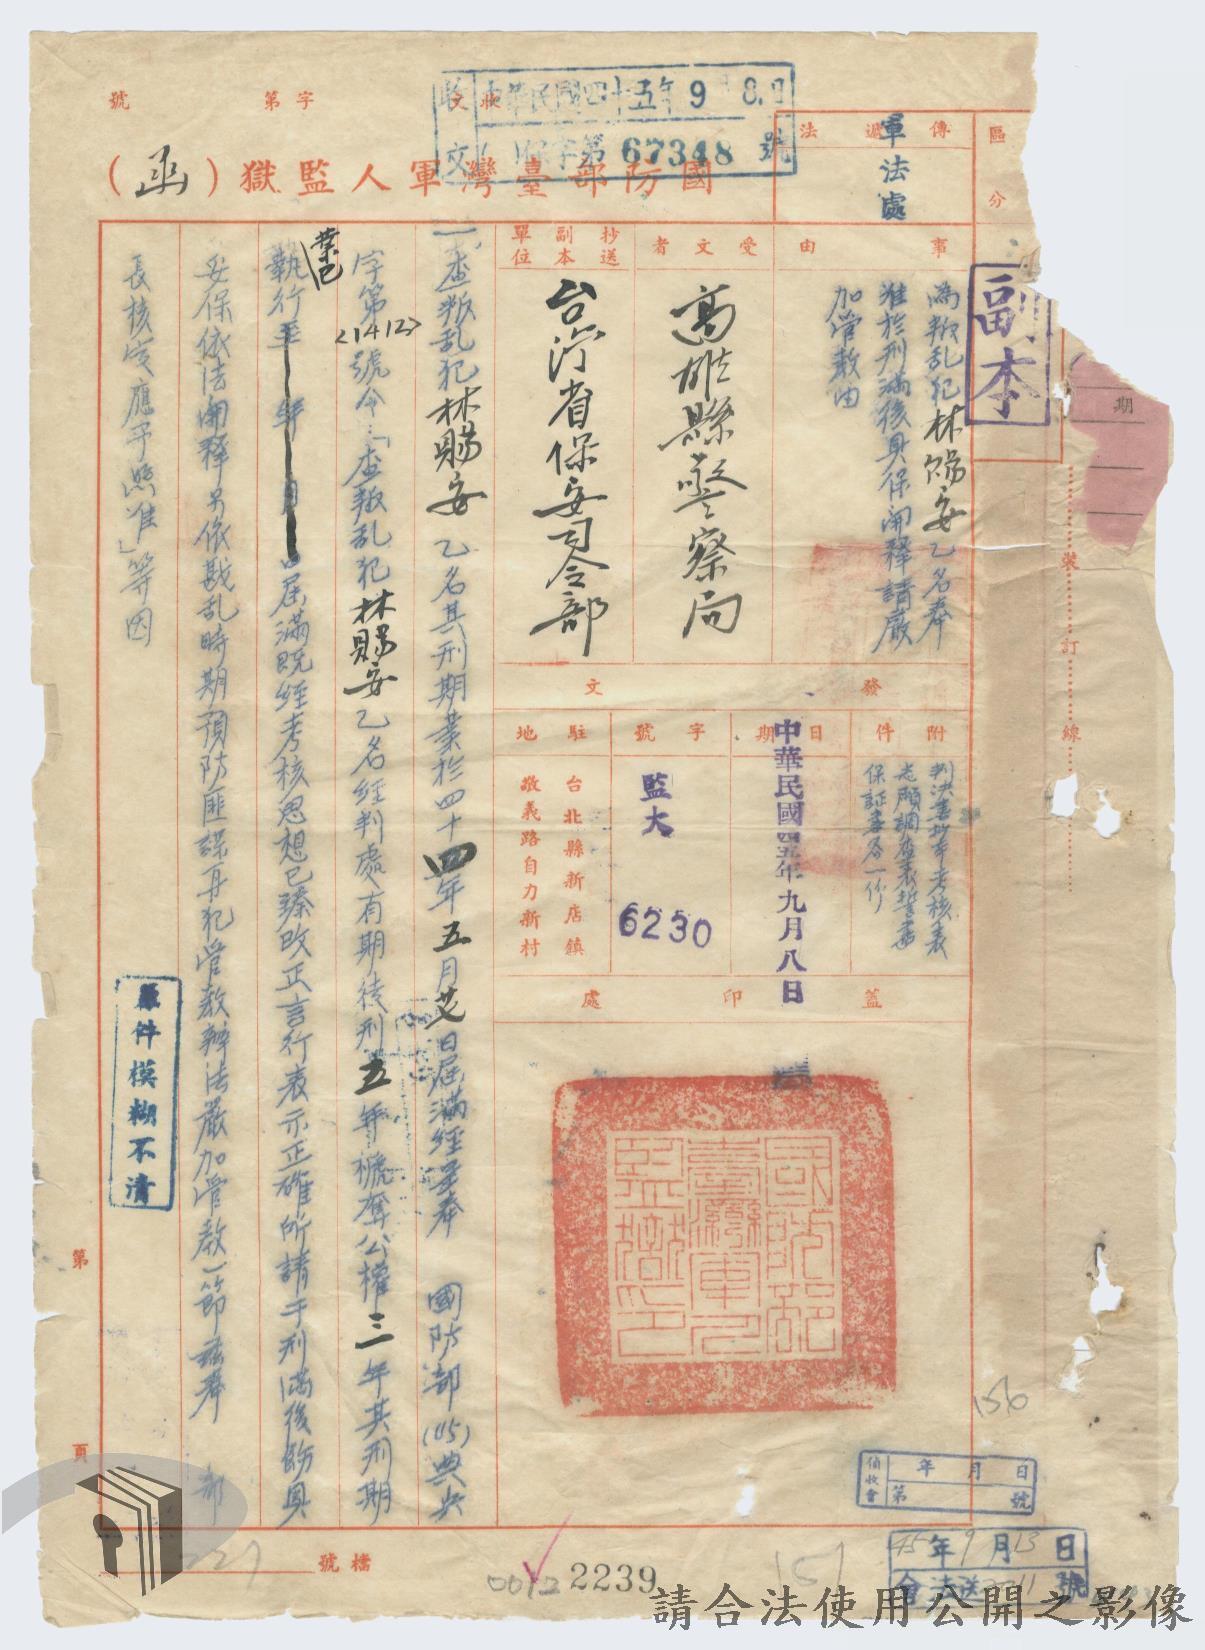 收文 中華民國四十五年9月8日
收文 字第 號
保字第67348號
國防部臺灣軍人監獄（函）
傳遞法
軍法處
區分
副本
期
事由
為叛乱犯林賜安乙名奉
准於刑滿後具保開釋請嚴
加管教由
受文者
高雄縣警察局
抄送副本單位
台灣省保安司令部
發文
附件
判決書抄本考核表
志願調查表誓書
保証書各一份
日期
中華民國四五年九月八日
字號
監大
6230
駐地
台北縣新店鎮
敬義路自力新村
蓋印處
國防部臺灣軍人監獄印
一、查叛乱犯林賜安乙名其刑期業於四十四年五月廿日屆滿經呈奉 國防部(45)典
字第<1412>號令：「查叛乱犯林賜安乙名經判處有期徒刑五年褫奪公權三年其刑期
業已
執行至 年 月 日屆滿既經考核思想已臻改正言行表示正確所請于刑滿後飭具
妥保依法開釋另依戡乱時期預防匪諜再犯管教辦法嚴加管教一節茲奉 部
長核定應予照准」等因
原件模糊不清
裝訂線
第頁
156
偵收會 年月日
第 號
45年9月13日
會法送 11號
檔號
227
0012 2239
157
請合法使用公開之影像